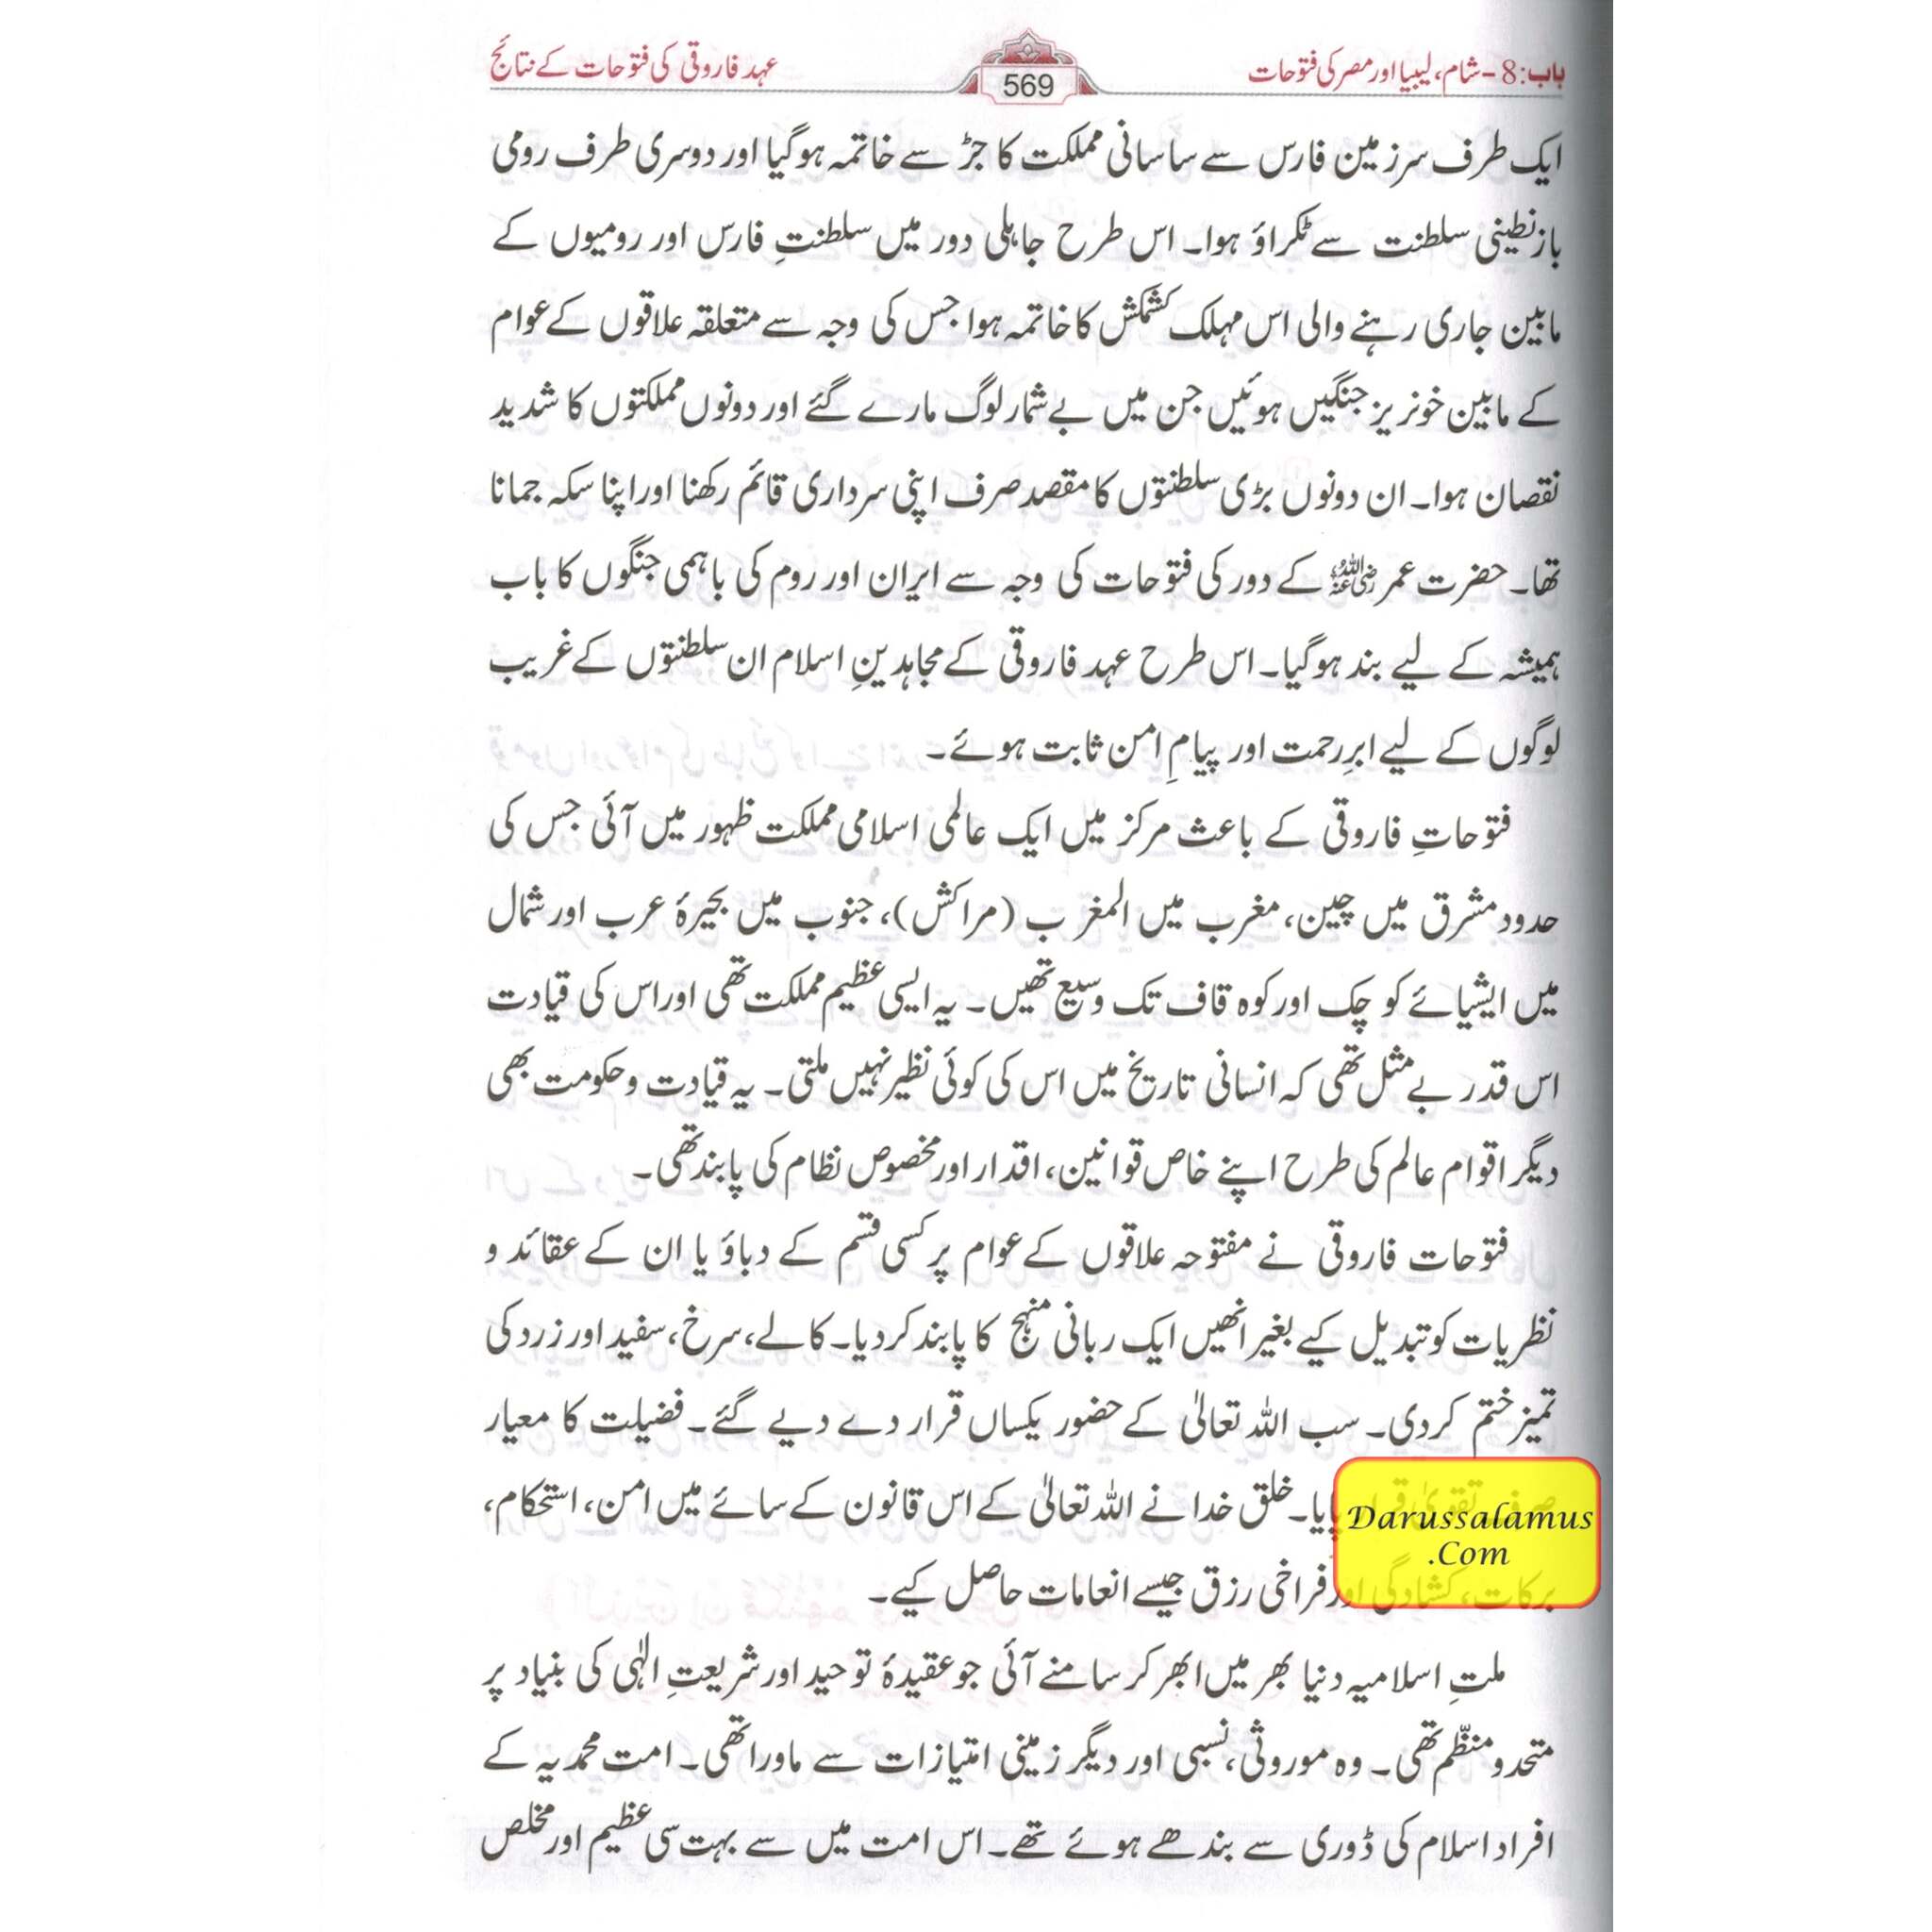 باب: 8 - شام، لیبیا اور مصر کی فتوحات
569
عہد فاروقی کی فتوحات کے نتائج
ایک طرف سرزمین فارس سے ساسانی مملکت کا جڑ سے خاتمہ ہوگیا اور دوسری طرف رومی
بازنطینی سلطنت سے ٹکراؤ ہوا۔ اس طرح جاہلی دور میں سلطنتِ فارس اور رومیوں کے
مابین جاری رہنے والی اس مہلک کشمکش کا خاتمہ ہوا جس کی وجہ سے متعلقہ علاقوں کے عوام
کے مابین خونریز جنگیں ہوئیں جن میں بے شمار لوگ مارے گئے اور دونوں مملکتوں کا شدید
نقصان ہوا۔ ان دونوں بڑی سلطنتوں کا مقصد صرف اپنی سرداری قائم رکھنا اور اپنا سکہ جمانا
تھا۔ حضرت عمر رضی اللہ عنہ کے دور کی فتوحات کی وجہ سے ایران اور روم کی باہمی جنگوں کا باب
ہمیشہ کے لیے بند ہوگیا۔ اس طرح عہد فاروقی کے مجاہدینِ اسلام ان سلطنتوں کے غریب
لوگوں کے لیے ابرِ رحمت اور پیامِ امن ثابت ہوئے۔
فتوحاتِ فاروقی کے باعث مرکز میں ایک عالمی اسلامی مملکت ظہور میں آئی جس کی
حدود مشرق میں چین، مغرب میں المغرب (مراکش)، جنوب میں بحیرۂ عرب اور شمال
میں ایشیائے کوچک اور کوہ قاف تک وسیع تھیں۔ یہ ایسی عظیم مملکت تھی اور اس کی قیادت
اس قدر بے مثل تھی کہ انسانی تاریخ میں اس کی کوئی نظیر نہیں ملتی۔ یہ قیادت و حکومت بھی
دیگر اقوام عالم کی طرح اپنے خاص قوانین، اقدار اور مخصوص نظام کی پابند تھی۔
فتوحات فاروقی نے مفتوحہ علاقوں کے عوام پر کسی قسم کے دباؤ یا ان کے عقائد و
نظریات کو تبدیل کیے بغیر انھیں ایک ربانی منہج کا پابند کردیا۔ کالے، سرخ، سفید اور زرد کی
تمیز ختم کردی۔ سب اللہ تعالیٰ کے حضور یکساں قرار دے دیے گئے۔ فضیلت کا معیار
صرف تقویٰ قرار پایا۔ خلق خدا نے اللہ تعالیٰ کے اس قانون کے سائے میں امن، استحکام،
برکات، کشادگی اور فراخی رزق جیسے انعامات حاصل کیے۔
Darussalamus
.Com
ملتِ اسلامیہ دنیا بھر میں ابھر کر سامنے آئی جو عقیدۂ توحید اور شریعتِ الٰہی کی بنیاد پر
متحد و منظّم تھی۔ وہ موروثی، نسبی اور دیگر زمینی امتیازات سے ماورا تھی۔ امت محمدیہ کے
افراد اسلام کی ڈوری سے بندھے ہوئے تھے۔ اس امت میں سے بہت سی عظیم اور مخلص